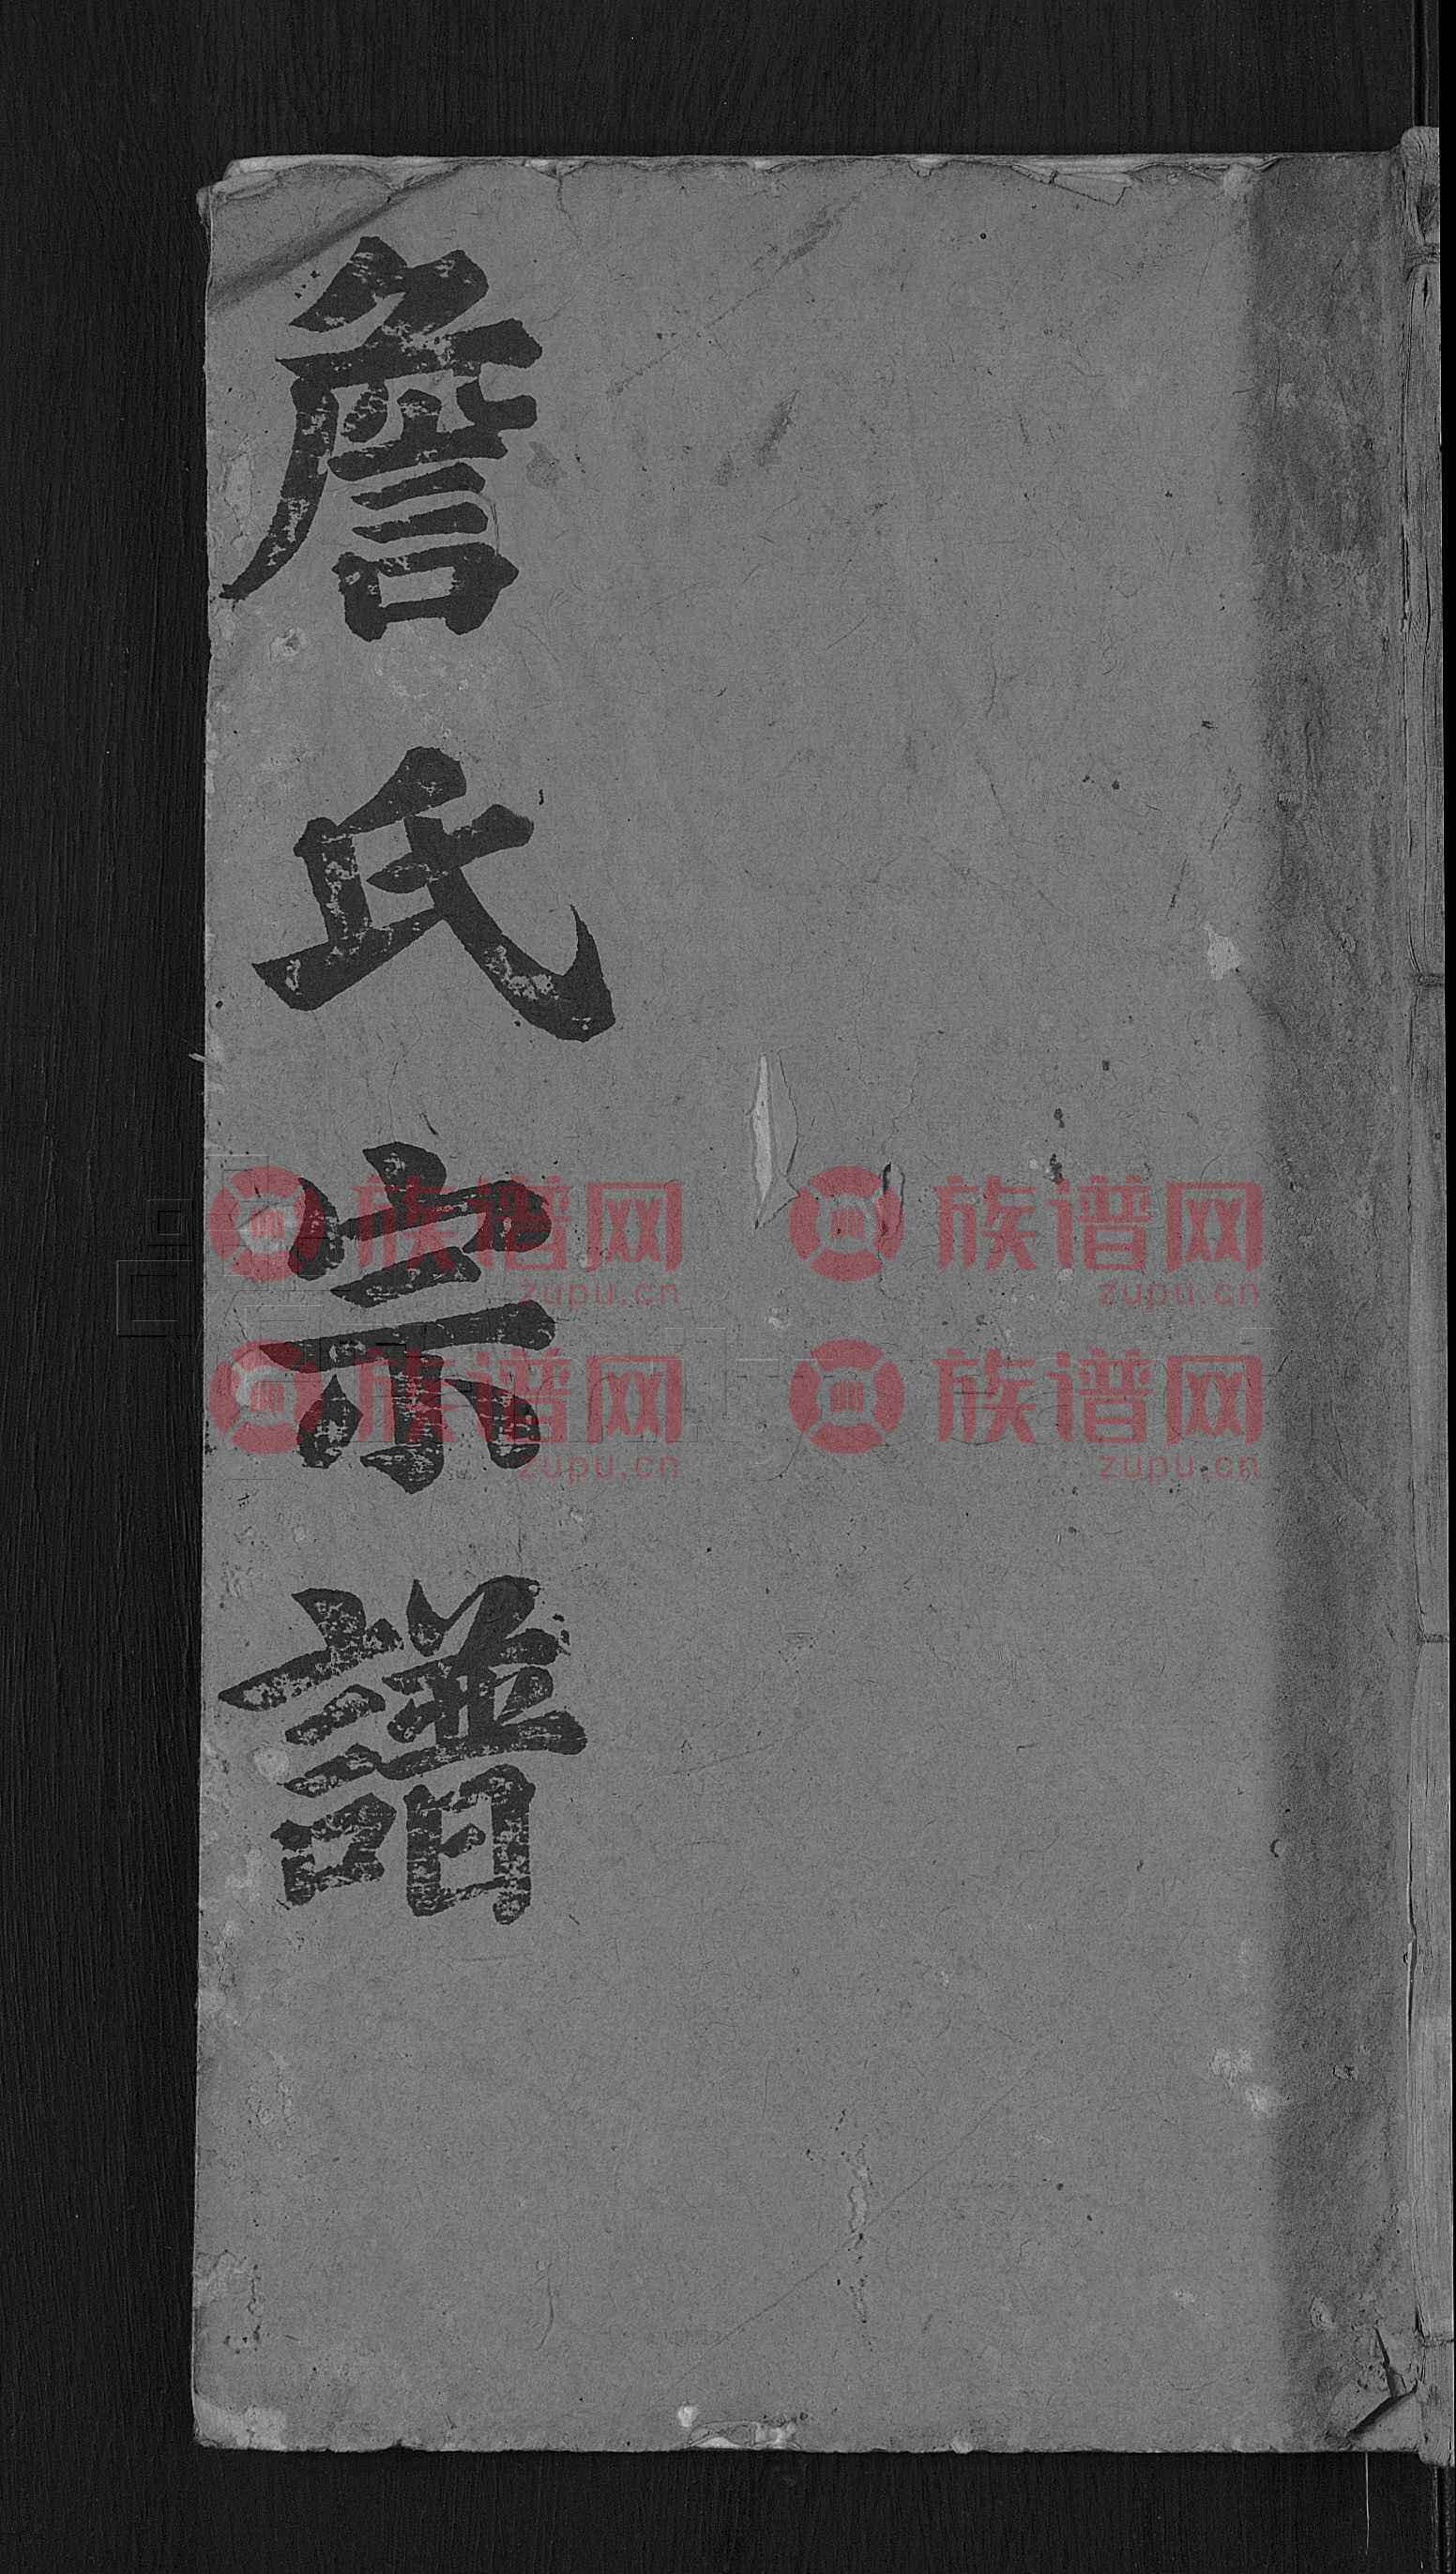 詹氏宗譜
族谱网 族谱网
zupu.cn zupu.cn
族谱网 族谱网
zupu.cn zupu.cn